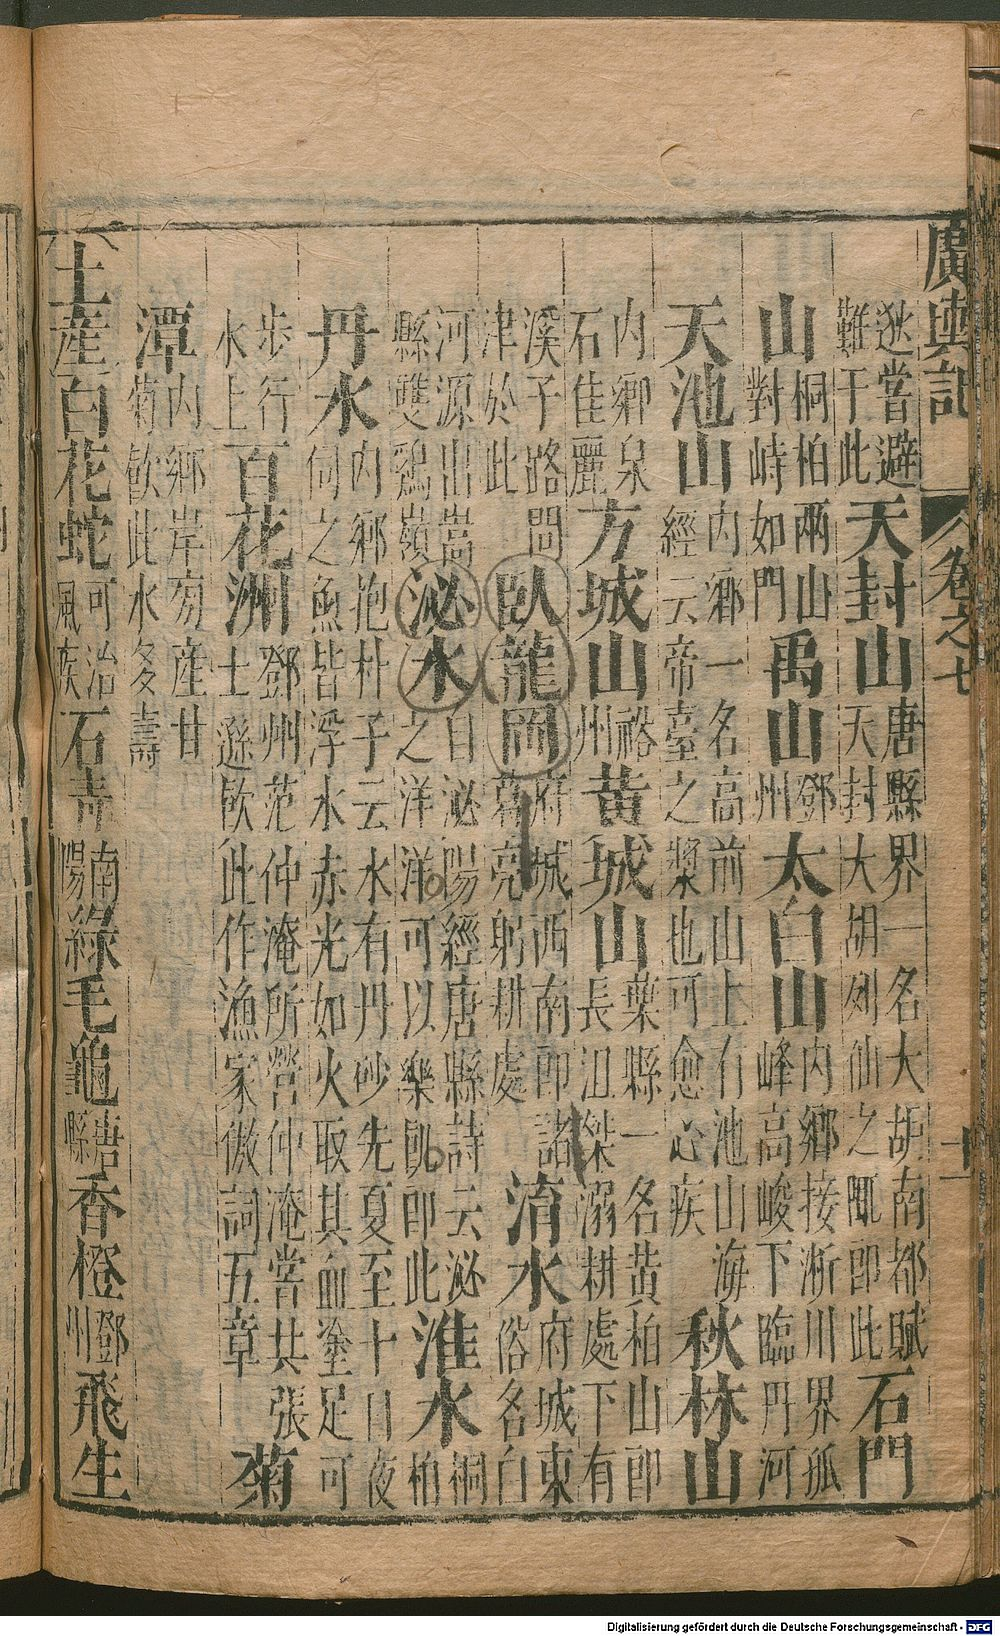 廣輿記 卷之七 十一
逖嘗避難于此 天封山 唐縣界一名大胡南都賦天封大胡列仙之陬即此 石門
山 桐柏兩山對峙如門 禹山 鄧州 太白山 内鄉接淅川界孤峰高峻下臨丹河
天池山 内鄉一名高前山上有池山海經云帝臺之漿也可愈心疾 秋林山
内鄉泉石佳麗 方城山 裕州 黃城山 葉縣一名黃柏山即長沮桀溺耕處下有
溪子路問津於此 臥龍岡 府城西南即諸葛亮躬耕處 淯水 府城東俗名白
河源出嵩縣雙鷄嶺 泌水 曰泌陽經唐縣詩云泌之洋洋可以樂飢即此 淮水 桐柏
丹水 内鄉抱朴子云水有丹砂先夏至十日夜伺之魚皆浮水赤光如火取其血塗足可
步行水上 百花洲 鄧州范仲淹所營仲淹嘗共張士遜飲此作漁家傲詞五章 菊
潭 内鄉岸旁產甘菊飲此水多壽
土產 白花蛇 可治風疾 石青 南陽 綠毛龜 唐縣 香橙 鄧州 飛生
Digitalisierung gefördert durch die Deutsche Forschungsgemeinschaft - DFG